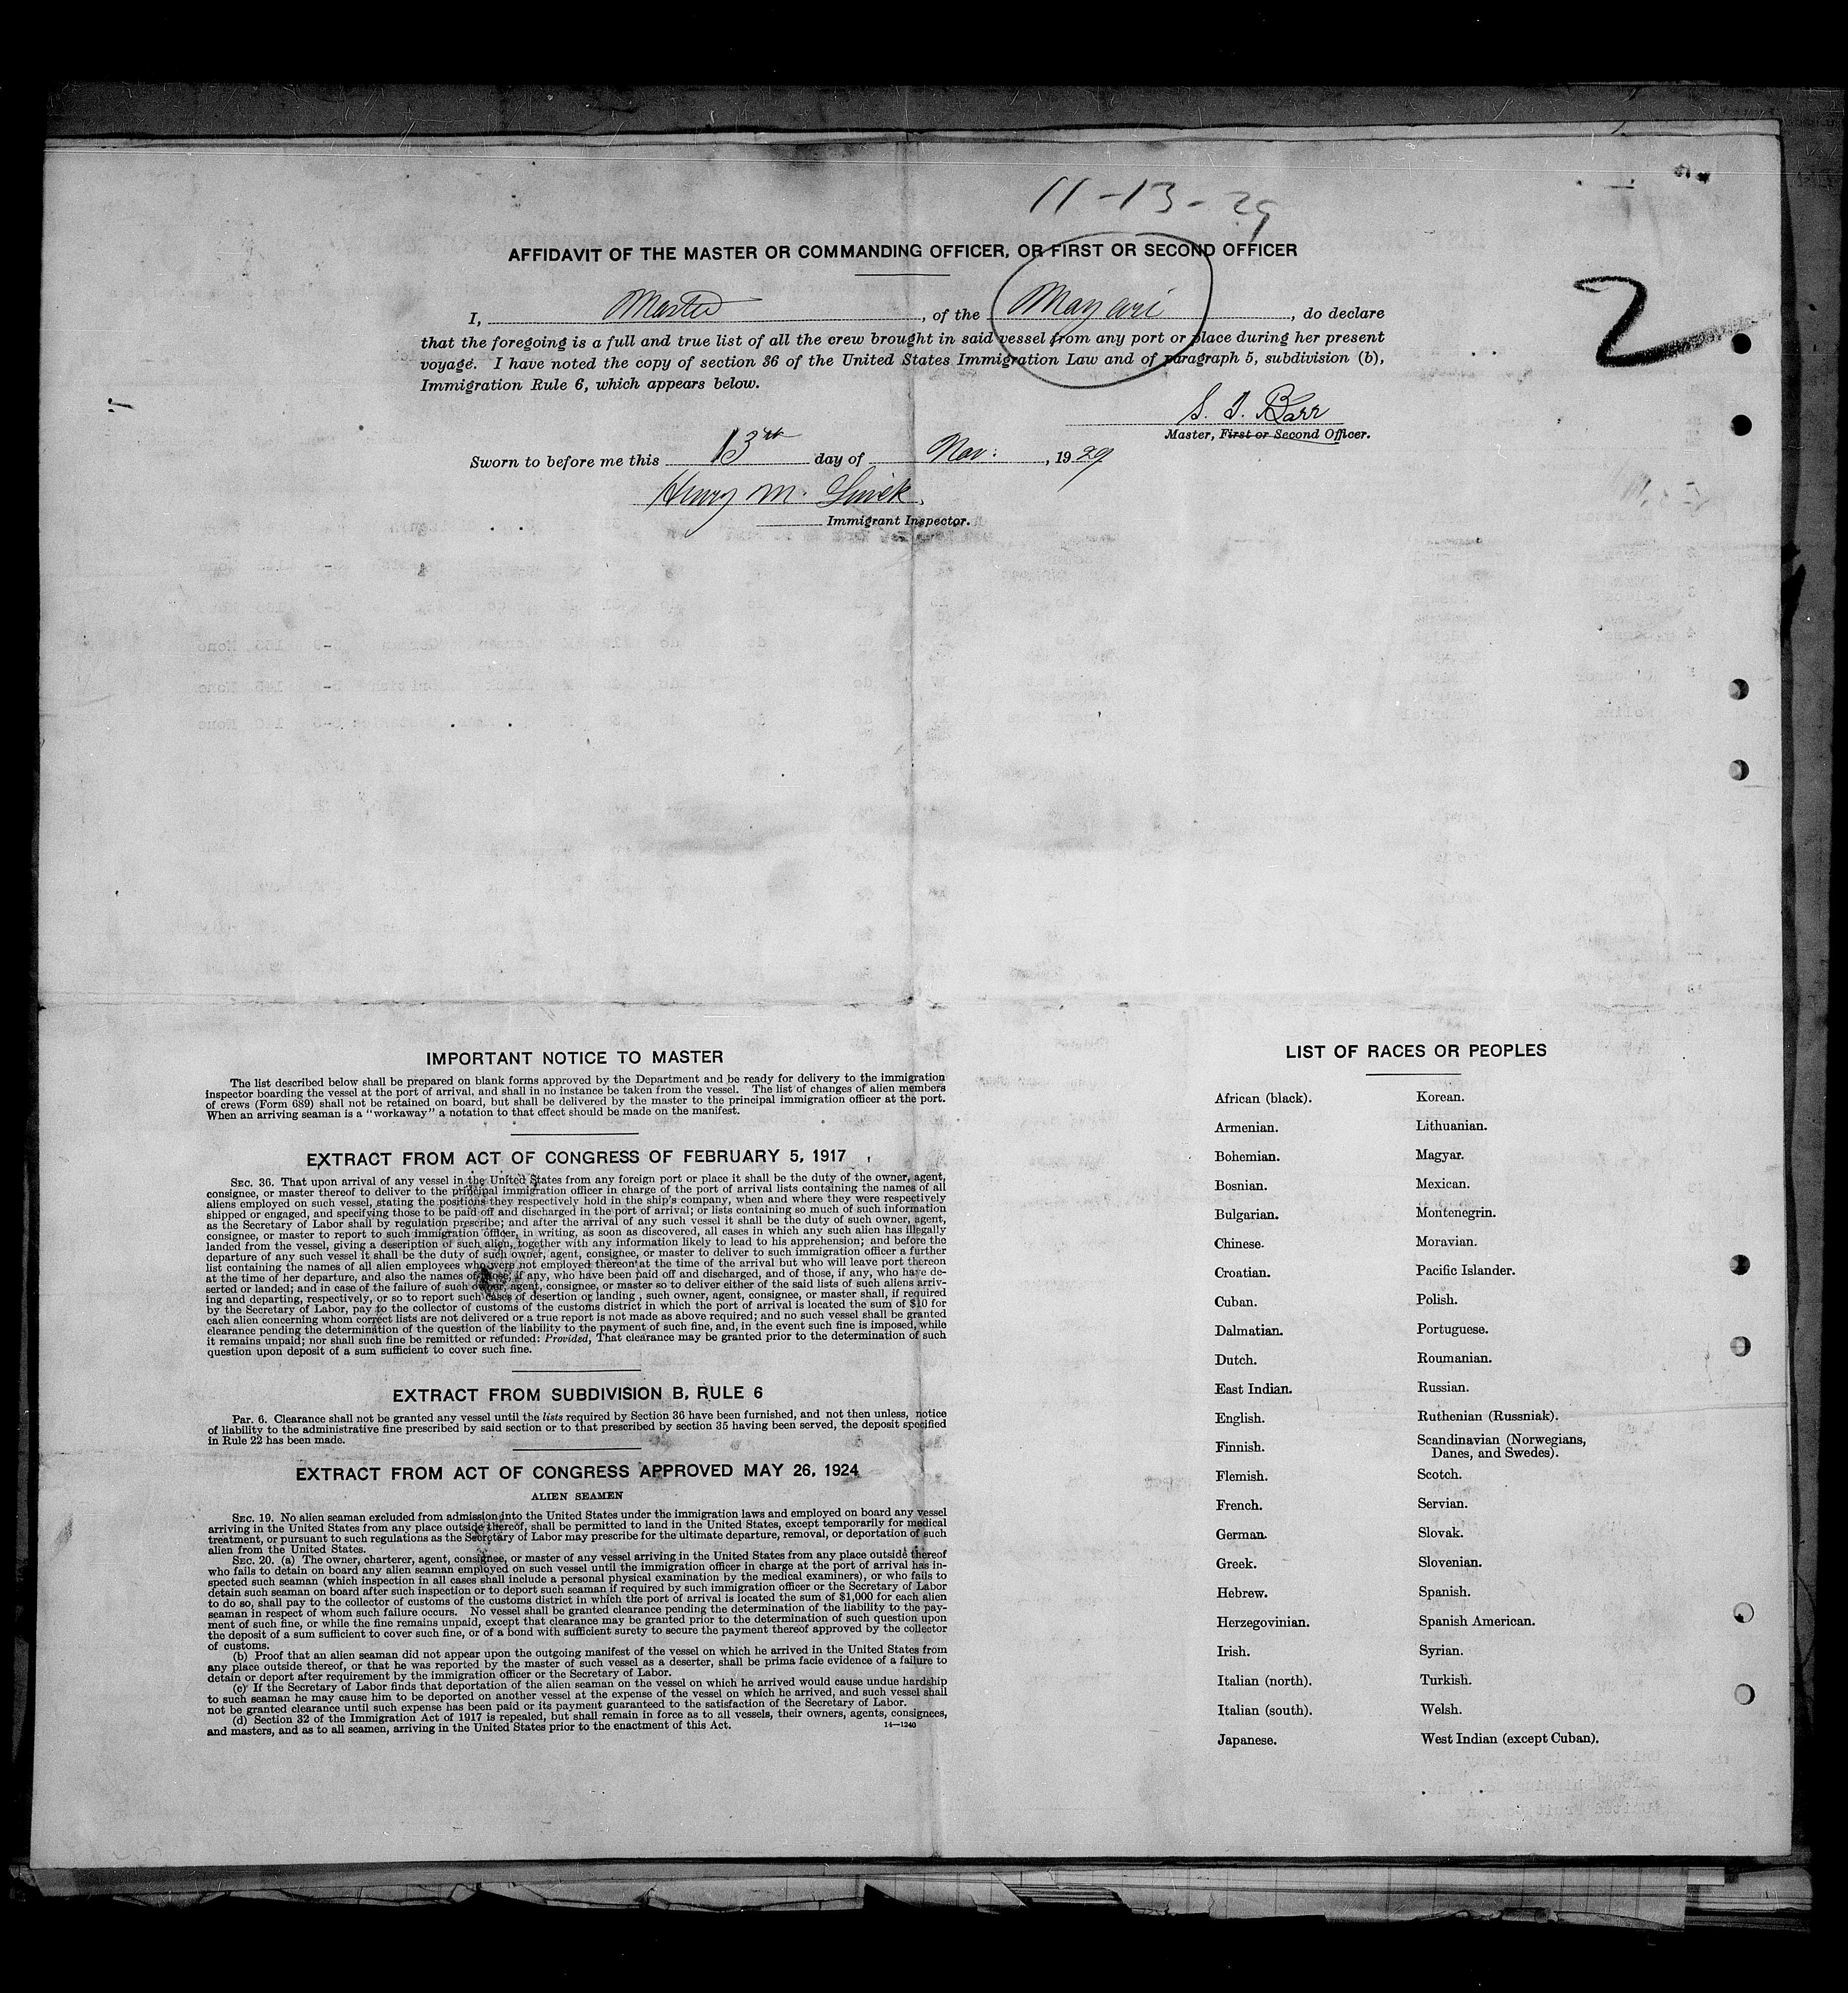 11-13-29
AFFIDAVIT OF THE MASTER OR COMMANDING OFFICER, OR FIRST OR SECOND OFFICER
2
I, Master, of the Mayari, do declare
that the foregoing is a full and true list of all the crew brought in said vessel from any port or place during her present
voyage. I have noted the copy of section 36 of the United States Immigration Law and of paragraph 5, subdivision (b),
Immigration Rule 6, which appears below.
Barr
Master, First or Second Officer.
Sworn to before me this 13th day of Nov: , 1929
Henry M.
Immigrant Inspector.
IMPORTANT NOTICE TO MASTER
The list described below shall be prepared on blank forms approved by the Department and be ready for delivery to the immigration
inspector boarding the vessel at the port of arrival, and shall in no instance be taken from the vessel. The list of changes of alien members
of crews (Form 689) shall not be retained on board, but shall be delivered by the master to the principal immigration officer at the port.
When an arriving seaman is a "workaway" a notation to that effect should be made on the manifest.
EXTRACT FROM ACT OF CONGRESS OF FEBRUARY 5, 1917
SEC. 36. That upon arrival of any vessel in the United States from any foreign port or place it shall be the duty of the owner, agent,
consignee, or master thereof to deliver to the principal immigration officer in charge of the port of arrival lists containing the names of all
aliens employed on such vessel, stating the positions they respectively hold in the ship's company, when and where they were respectively
shipped or engaged, and specifying those to be paid off and discharged in the port of arrival; or lists containing so much of such information
as the Secretary of Labor shall by regulation prescribe; and after the arrival of any such vessel it shall be the duty of such owner, agent,
consignee, or master to report to such immigration officer, in writing, as soon as discovered, all cases in which any such alien has illegally
landed from the vessel, giving a description of such alien, together with any information likely to lead to his apprehension; and before the
departure of any such vessel it shall be the duty of such owner, agent, consignee, or master to deliver to such immigration officer a further
list containing the names of all alien employees who were not employed thereon at the time of the arrival but who will leave port thereon
at the time of her departure, and also the names of those, if any, who have been paid off and discharged, and of those, if any, who have de-
serted or landed; and in case of the failure of such owner, agent, consignee, or master so to deliver either of the said lists of such aliens arriv-
ing and departing, respectively, or so to report such cases of desertion or landing, such owner, agent, consignee, or master, shall, if required
by the Secretary of Labor, pay to the collector of customs of the customs district in which the port of arrival is located the sum of $10 for
each alien concerning whom correct lists are not delivered or a true report is not made as above required; and no such vessel shall be granted
clearance pending the determination of the question of the liability to the payment of such fine, and, in the event such fine is imposed, while
it remains unpaid; nor shall such fine be remitted or refunded: Provided, That clearance may be granted prior to the determination of such
question upon deposit of a sum sufficient to cover such fine.
EXTRACT FROM SUBDIVISION B, RULE 6
Par. 6. Clearance shall not be granted any vessel until the lists required by Section 36 have been furnished, and not then unless, notice
of liability to the administrative fine prescribed by said section or to that prescribed by section 35 having been served, the deposit specified
in Rule 22 has been made.
EXTRACT FROM ACT OF CONGRESS APPROVED MAY 26, 1924
ALIEN SEAMEN
SEC. 19. No alien seaman excluded from admission into the United States under the immigration laws and employed on board any vessel
arriving in the United States from any place outside thereof, shall be permitted to land in the United States, except temporarily for medical
treatment, or pursuant to such regulations as the Secretary of Labor may prescribe for the ultimate departure, removal, or deportation of such
alien from the United States.
SEC. 20. (a) The owner, charterer, agent, consignee, or master of any vessel arriving in the United States from any place outside thereof
who fails to detain on board any alien seaman employed on such vessel until the immigration officer in charge at the port of arrival has in-
spected such seaman (which inspection in all cases shall include a personal physical examination by the medical examiners), or who fails to
detain such seaman on board after such inspection or to deport such seaman if required by such immigration officer or the Secretary of Labor
to do so, shall pay to the collector of customs of the customs district in which the port of arrival is located the sum of $1,000 for each alien
seaman in respect of whom such failure occurs. No vessel shall be granted clearance pending the determination of the liability to the pay-
ment of such fine, or while the fine remains unpaid, except that clearance may be granted prior to the determination of such question upon
the deposit of a sum sufficient to cover such fine, or of a bond with sufficient surety to secure the payment thereof approved by the collector
of customs.
(b) Proof that an alien seaman did not appear upon the outgoing manifest of the vessel on which he arrived in the United States from
any place outside thereof, or that he was reported by the master of such vessel as a deserter, shall be prima facie evidence of a failure to
detain or deport after requirement by the immigration officer or the Secretary of Labor.
(c) If the Secretary of Labor finds that deportation of the alien seaman on the vessel on which he arrived would cause undue hardship
to such seaman he may cause him to be deported on another vessel at the expense of the vessel on which he arrived, and such vessel shall
not be granted clearance until such expense has been paid or its payment guaranteed to the satisfaction of the Secretary of Labor.
(d) Section 32 of the Immigration Act of 1917 is repealed, but shall remain in force as to all vessels, their owners, agents, consignees,
and masters, and as to all seamen, arriving in the United States prior to the enactment of this Act.
14—1240
LIST OF RACES OR PEOPLES
African (black).
Armenian.
Bohemian.
Bosnian.
Bulgarian.
Chinese.
Croatian.
Cuban.
Dalmatian.
Dutch.
East Indian.
English.
Finnish.
Flemish.
French.
German.
Greek.
Hebrew.
Herzegovinian.
Irish.
Italian (north).
Italian (south).
Japanese.
Korean.
Lithuanian.
Magyar.
Mexican.
Montenegrin.
Moravian.
Pacific Islander.
Polish.
Portuguese.
Roumanian.
Russian.
Ruthenian (Russniak).
Scandinavian (Norwegians,
Danes, and Swedes).
Scotch.
Servian.
Slovak.
Slovenian.
Spanish.
Spanish American.
Syrian.
Turkish.
Welsh.
West Indian (except Cuban).